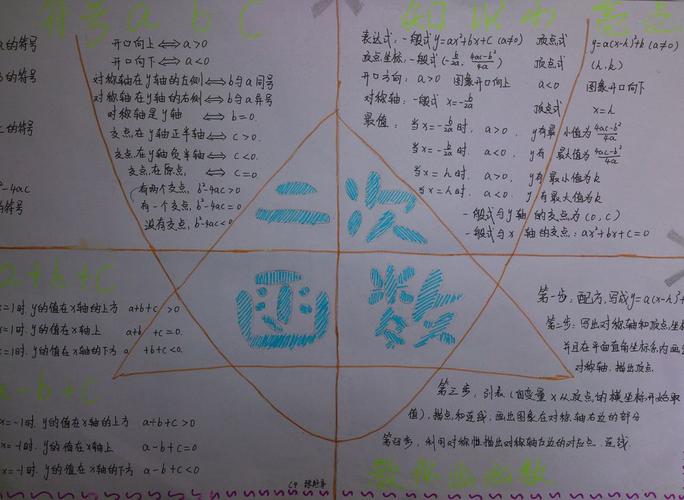 符号 a b C
a的符号
开口向上⟺a>0
开口向下⟺a<0
对称轴在y轴的左侧⟺b与a同号
对称轴在y轴的右侧⟺b与a异号
对称轴是y轴⟺b=0.
c的符号
交点在y轴正半轴⟺c>0.
交点在y轴负半轴⟺c<0.
交点在原点⟺c=0
b²-4ac
的符号
有两个交点, b²-4ac>0
有一个交点, b²-4ac=0
没有交点, b²-4ac<0
表达式: 一般式y=ax²+bx+c (a≠0) 顶点式 y=a(x-h)²+k (a≠0)
顶点坐标: 一般式(-b/2a, 4ac-b²/4a) 顶点式 (h,k)
开口方向: a>0 图象开口向上 a<0 图象开口向下
对称轴: 一般式 x=-b/2a 顶点式 x=h
最值: 当x=-b/2a时, a>0, y有最小值为4ac-b²/4a
当x=-b/2a时, a<0, y有最大值为4ac-b²/4a
当x=h时, a>0, y有最小值为k
当x=h时, a<0, y有最大值为k
一般式与y轴的交点为(0,c)
一般式与x轴的交点: ax²+bx+c=0
二次
函数
a+b+c
x=1时, y的值在x轴的上方 a+b+c>0
x=1时, y的值在x轴上 a+b+c=0.
x=1时, y的值在x轴的下方 a+b+c<0.
a-b+c
x=-1时, y的值在x轴的上方 a-b+c>0
x=-1时, y的值在x轴上 a-b+c=0
x=-1时, y的值在x轴的下方 a-b+c<0
第一步, 配方, 写成y=a(x-h)²+
第二步, 写出对称轴和顶点坐标
并且在平面直角坐标系内画
对称轴, 描出顶点.
第三步, 列表(自变量x从顶点的横坐标开始取
值), 描点和连线, 画出图象在对称轴右边的部分
第四步, 利用对称性描出对称轴左边的对应点, 连线
C9